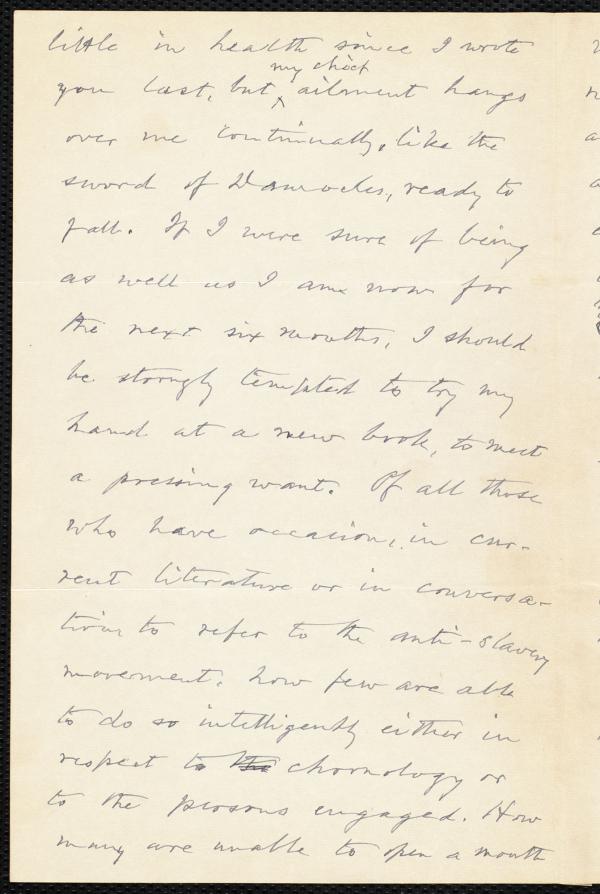 little in health since I wrote
my chief
you last, but ‸ ailment hangs
over me continually, like the
sword of Damocles, ready to
fall. If I were sure of being
as well as I am now for
the next six months, I should
be strongly tempted to try my
hand at a new book, to meet
a pressing want. Of all those
who have occasion, in cur-
rent literature or in conversa-
tion to refer to the anti-slavery
movement, how few are able
to do so intelligently either in
respect to the chronology or
to the persons engaged. How
many are unable to open a mouth